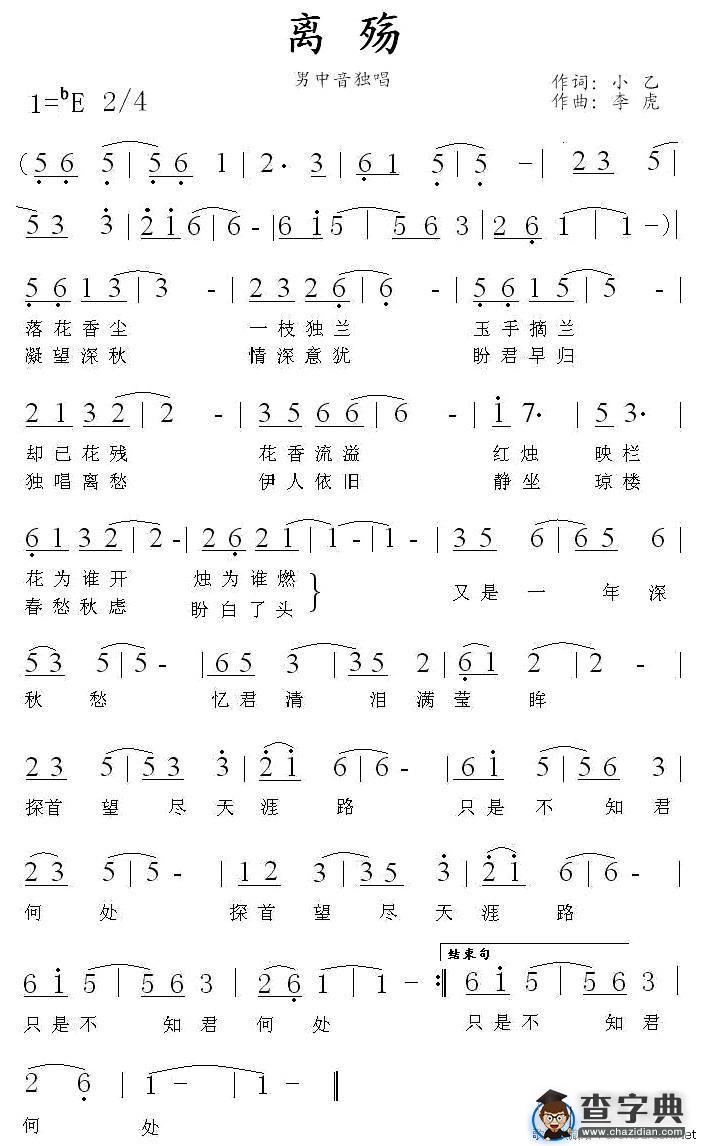 离 殇
男中音独唱
作词：小 乙
1=ᵇE 2/4
作曲：李 虎
(5 6 5 | 5 6 1 | 2· 3 | 6 1 5 | 5 - | 2 3 5 |
5 3 3 | 2 i 6 | 6 - | 6 i 5 | 5 6 3 | 2 6 1 | 1 -) |
5 6 1 3 | 3 - | 2 3 2 6 | 6 - | 5 6 1 5 | 5 - |
落花香尘 一枝独兰 玉手摘兰
凝望深秋 情深意犹 盼君早归
2 1 3 2 | 2 - | 3 5 6 6 | 6 - | i 7· | 5 3· |
却已花残 花香流溢 红烛 映栏
独唱离愁 伊人依旧 静坐 琼楼
6 1 3 2 | 2 - | 2 6 2 1 | 1 - | 1 - | 3 5 6 | 6 5 6 |
花为谁开 烛为谁燃
又是一 年深
春愁秋虑 盼白了头
5 3 5 | 5 - | 6 5 3 | 3 5 2 | 6 1 2 | 2 - |
秋 愁 忆君清 泪满莹 眸
2 3 5 | 5 3 3 | 2 i 6 | 6 - | 6 i 5 | 5 6 3 |
探首 望 尽天涯 路 只是不 知君
2 3 5 | 5 - | 1 2 3 | 3 5 3 | 2 i 6 | 6 - |
何 处 探首望 尽天涯 路
结束句
6 i 5 | 5 6 3 | 2 6 1 | 1 - :‖ 6 i 5 | 5 6 3 |
只是不 知君何 处 只是不 知君
2 6 | 1 - | 1 - ‖
何 处
查字典
www.chazidian.com